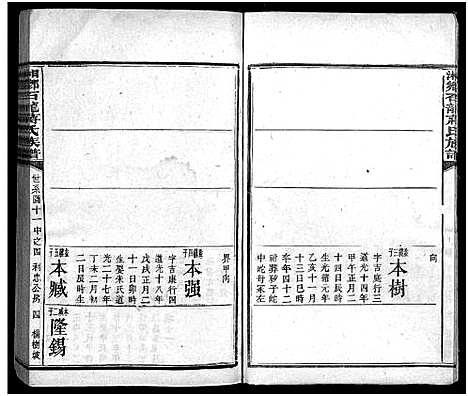 湘鄉石龍蔣氏族譜
向
本樹
字吉康行三
道光十四年
甲午正月二
十四日辰時
生光緒元年
乙亥十一月
十三日巳時
年四十二
祔葬矽子坨
中坨哿冢左
界甲向
本强
字吉康行四
道光十八年
戊戌正月二
十一日卯時
生娶朱氏道
光二十七年
丁未二月初
二日辰時生
本臧
隆錫
湘鄉石龍蔣氏族譜
世系圖十一中之四
利忠公房
四
橫樹坡